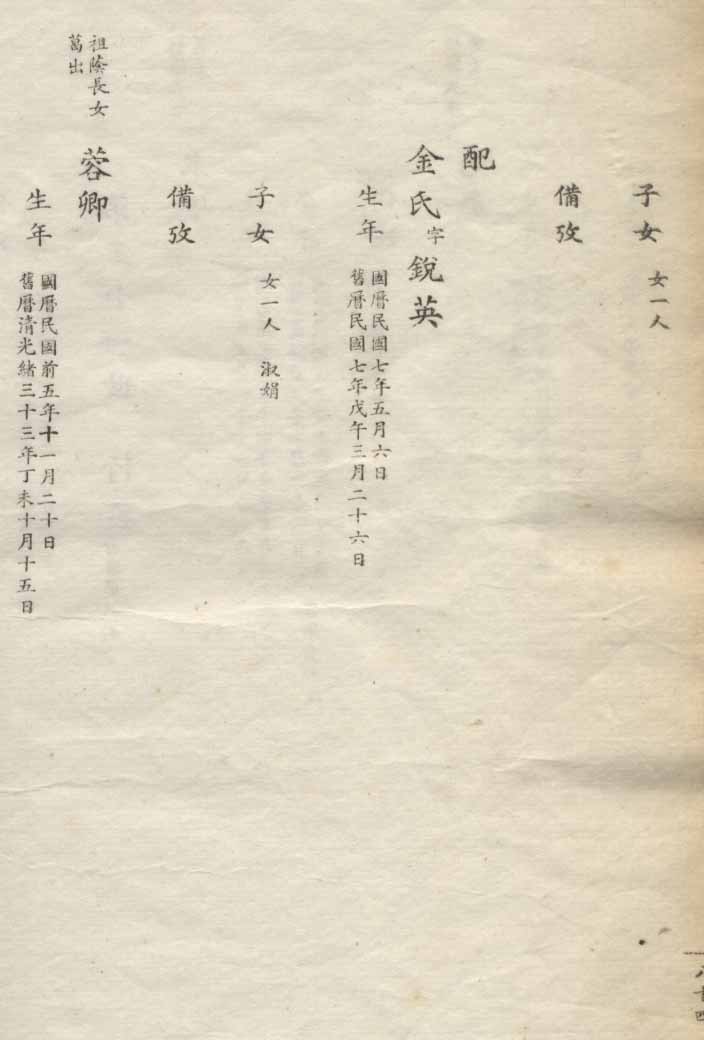 子女 女一人
備攷
配
金氏字銳英
生年 國曆民國七年五月六日
舊曆民國七年戊午三月二十六日
子女 女一人 淑娟
備攷
祖蔭長女
葛出
蓉卿
生年 國曆民國前五年十一月二十日
舊曆清光緒三十三年丁未十月十五日
八十四